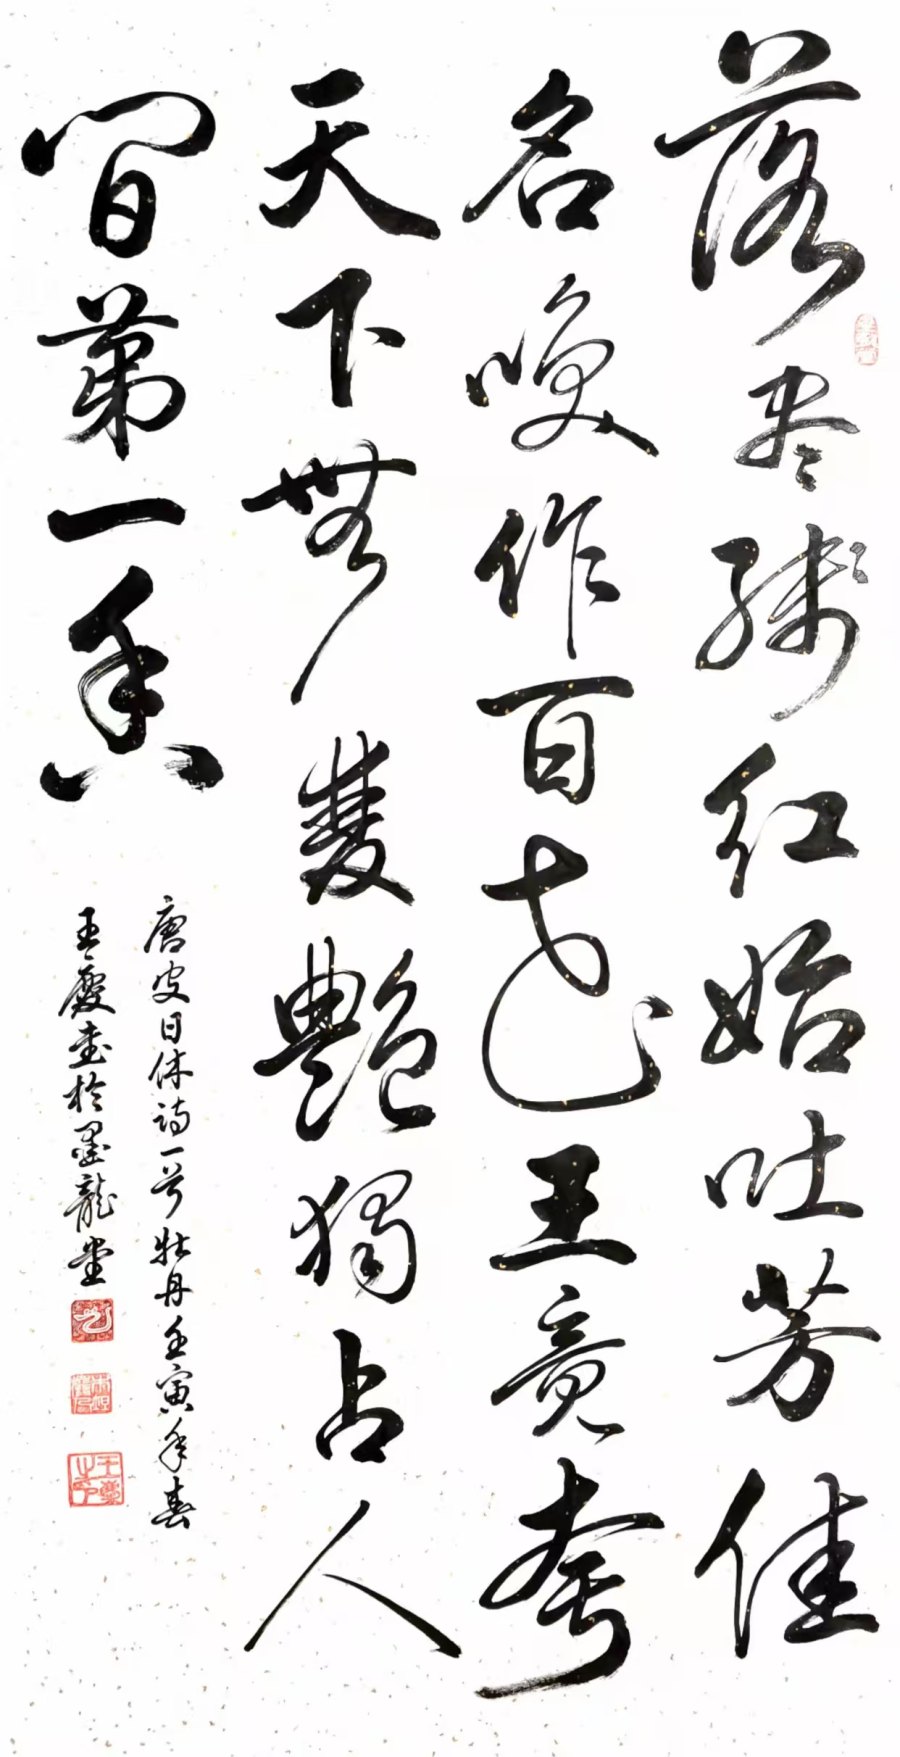 落尽残红始吐芳佳
名唤作百花王竟夸
天下無雙艳獨占人
间第一香
唐皮日休诗一首牡丹壬寅年春
王慶书於墨龍堂